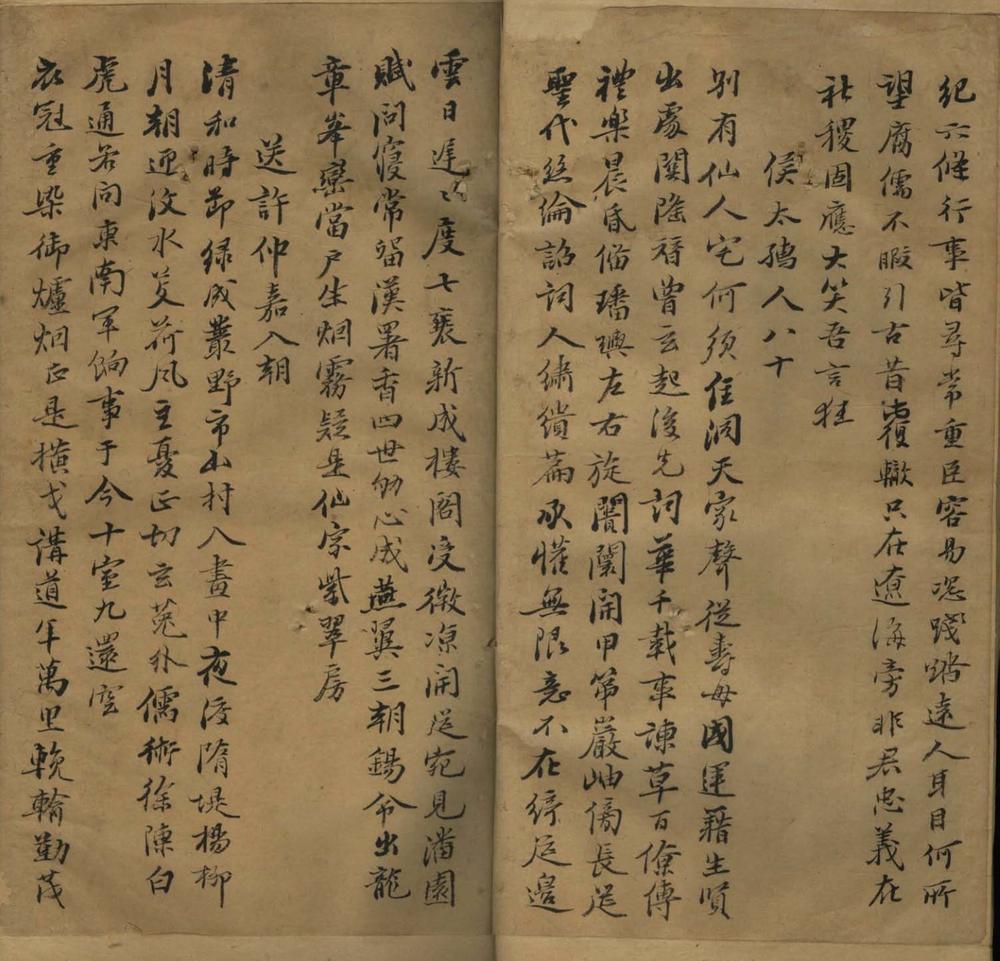 紀六條行事皆尋常重臣容易況踐踏遠人耳目何所
望腐儒不暇引古昔覆轍只在遼海旁非君忠義在
社稷固應大笑吾言狂
侯太孺人八十
別有仙人宅何須住洞天家聲從壽母國運藉生賢
出處關隆替曾玄起後先詞華千載事諫草百僚傳
禮樂晨昏備璠璵左右旋闤闠開甲第巖岫儼長筵
聖代絲綸詔詞人繡繢篇承懽無限意不在綺筵邊
雲日遲遲度七襄新成樓閣受微涼開筵宛見潘園
賦問寢常留漢署香四世劬心成燕翼三朝錫命出龍
章峯巒當戶生烟霧疑是仙宗紫翠房
送許仲嘉入朝
清和時節綠成叢野市山村入畫中夜渡隋堤楊柳
月朝迎汶水芰荷風主憂正切玄菟朴儒術徐陳白
虎通若問東南軍餉事于今十室九還空
衣冠重染御爐烟正是橫戈講道年萬里輓輸勤茂